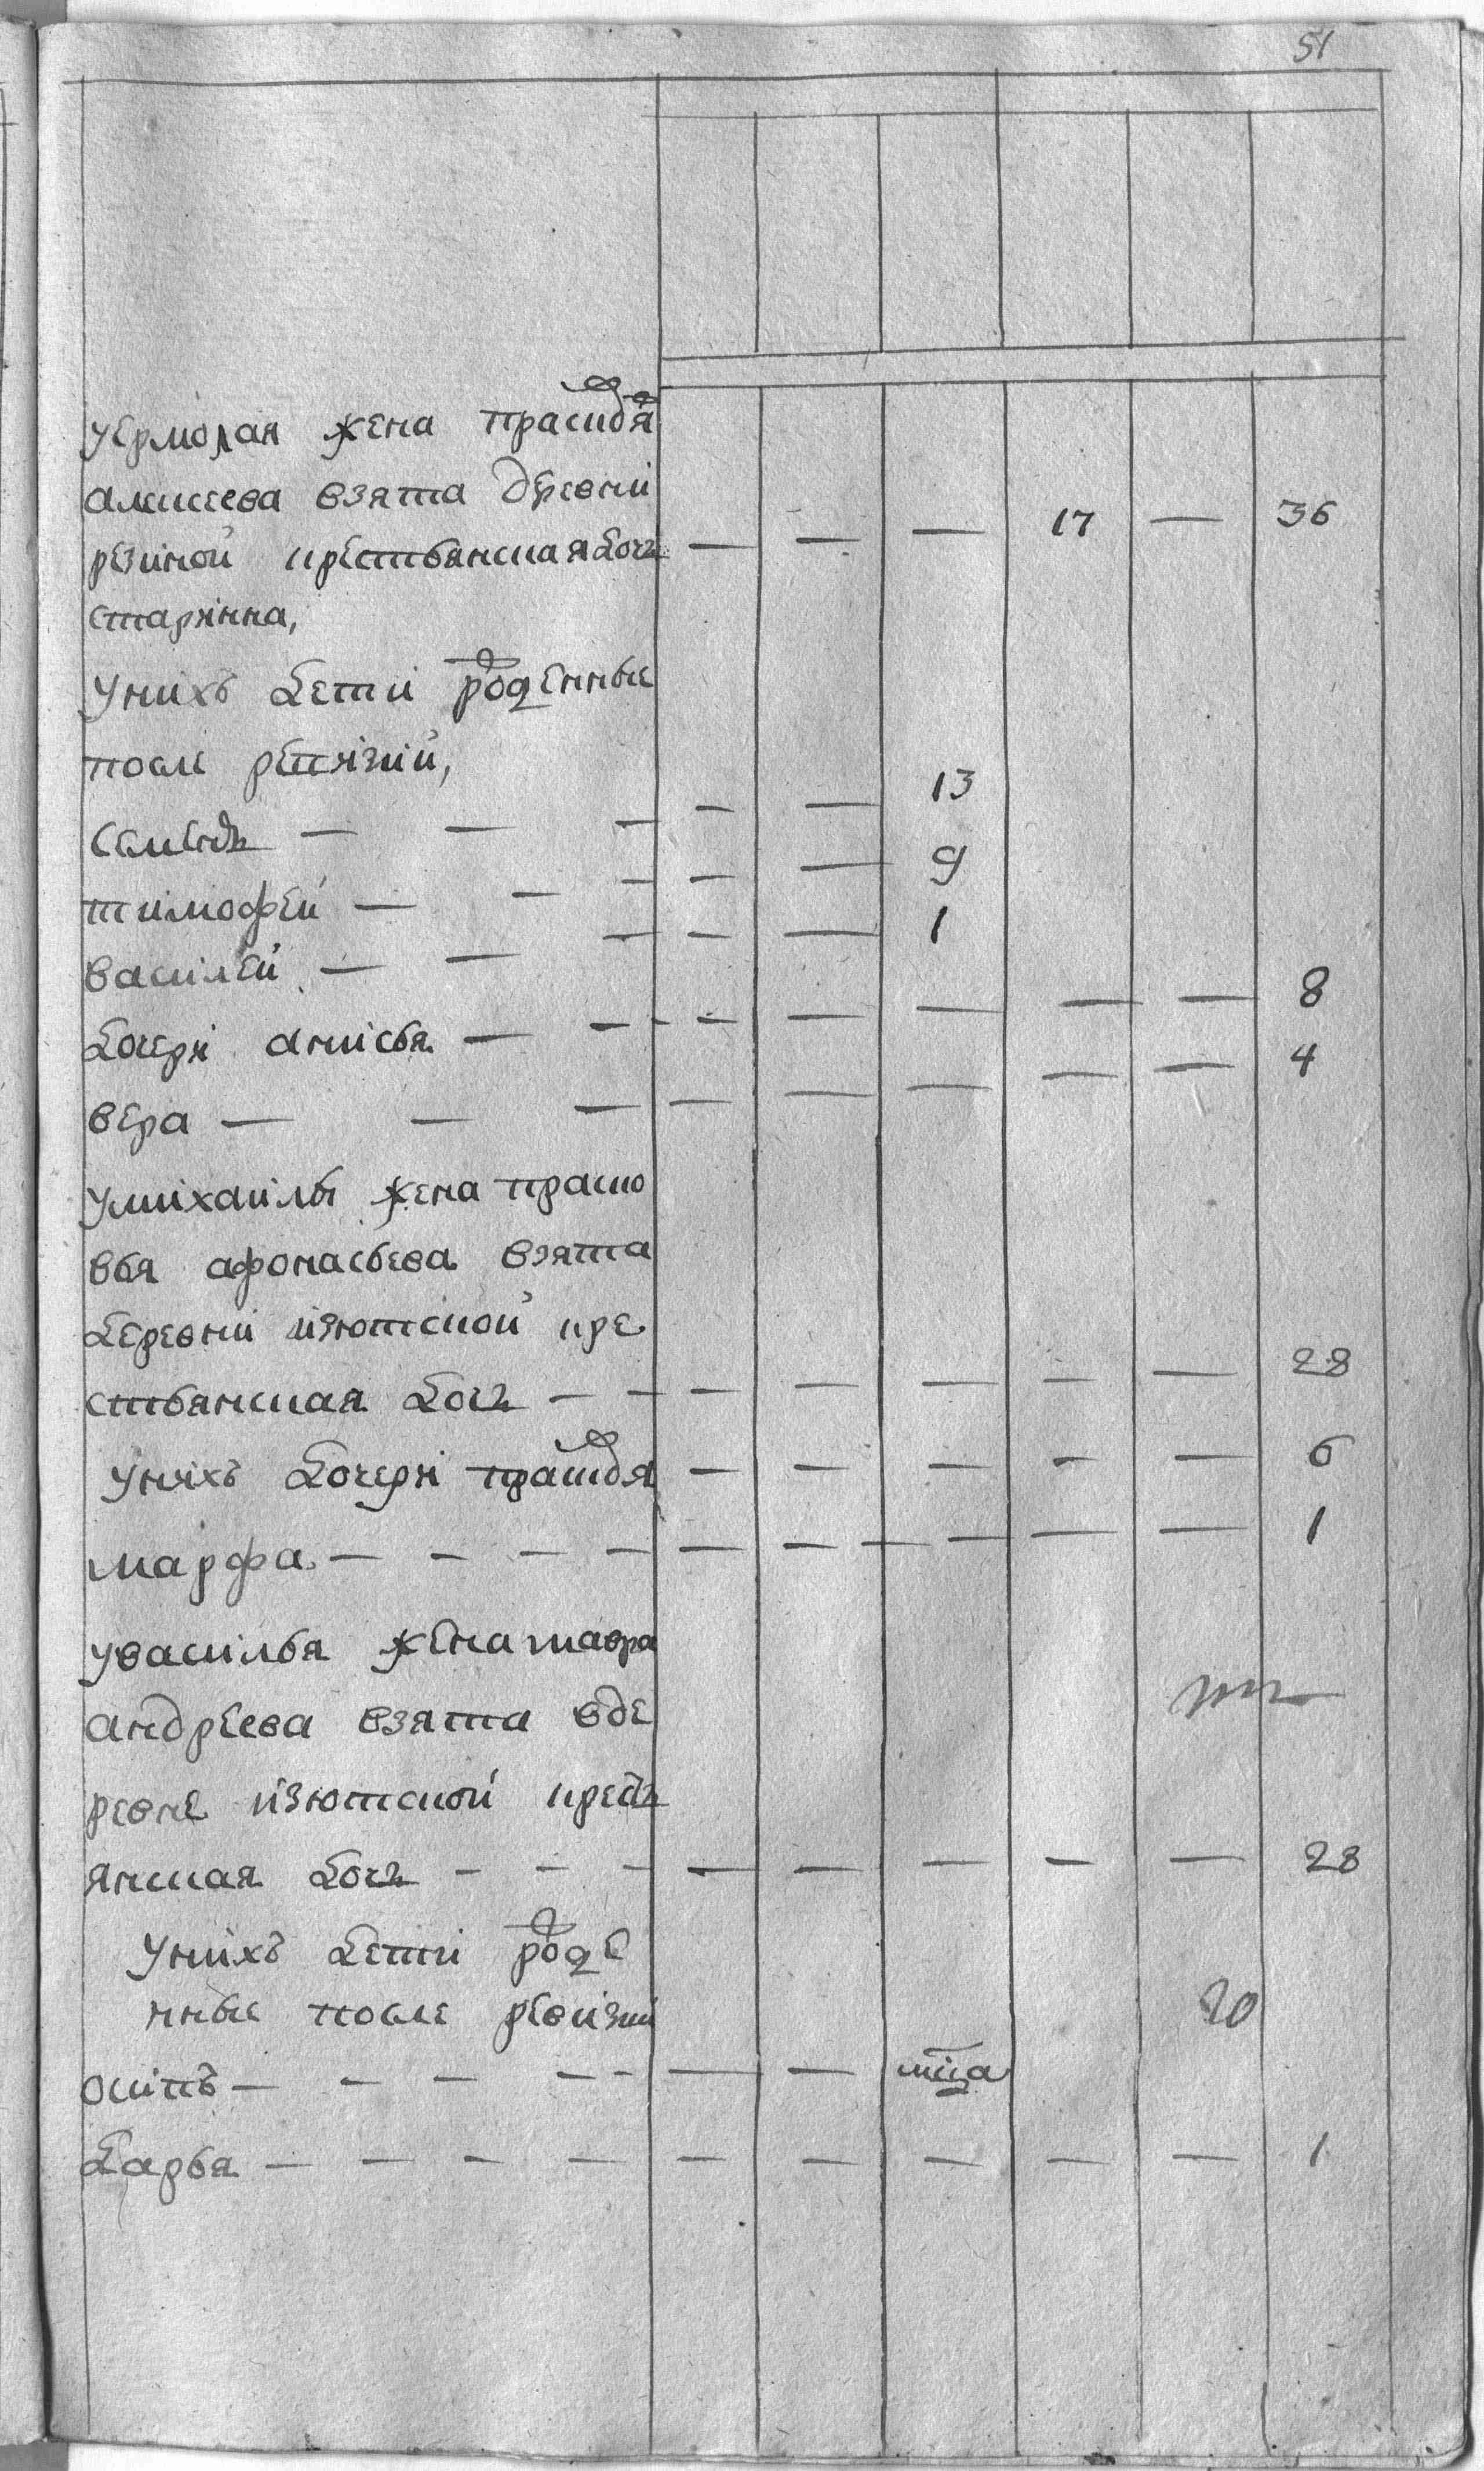 51
уермолая жена прасков̾я
алексеева взята древни
резиной крестьянская доч 17 36
старинна,
уних̾ дети рожденные
после ревизий,
семен 13
тимофей 9
василей 1
дочери анисья 8
вера 4
умихаилы жена праско
вья афонасьева взята
деревни изютской кре
стьянская доч 28
унихъ дочери прасковя 6
марфа 1
увасилья жена мавра
андреева взята вде
ревне изютской крест
янская доч 28
унихъ дети рожде
нные после ревизии 20
осипъ мца
дарья 1